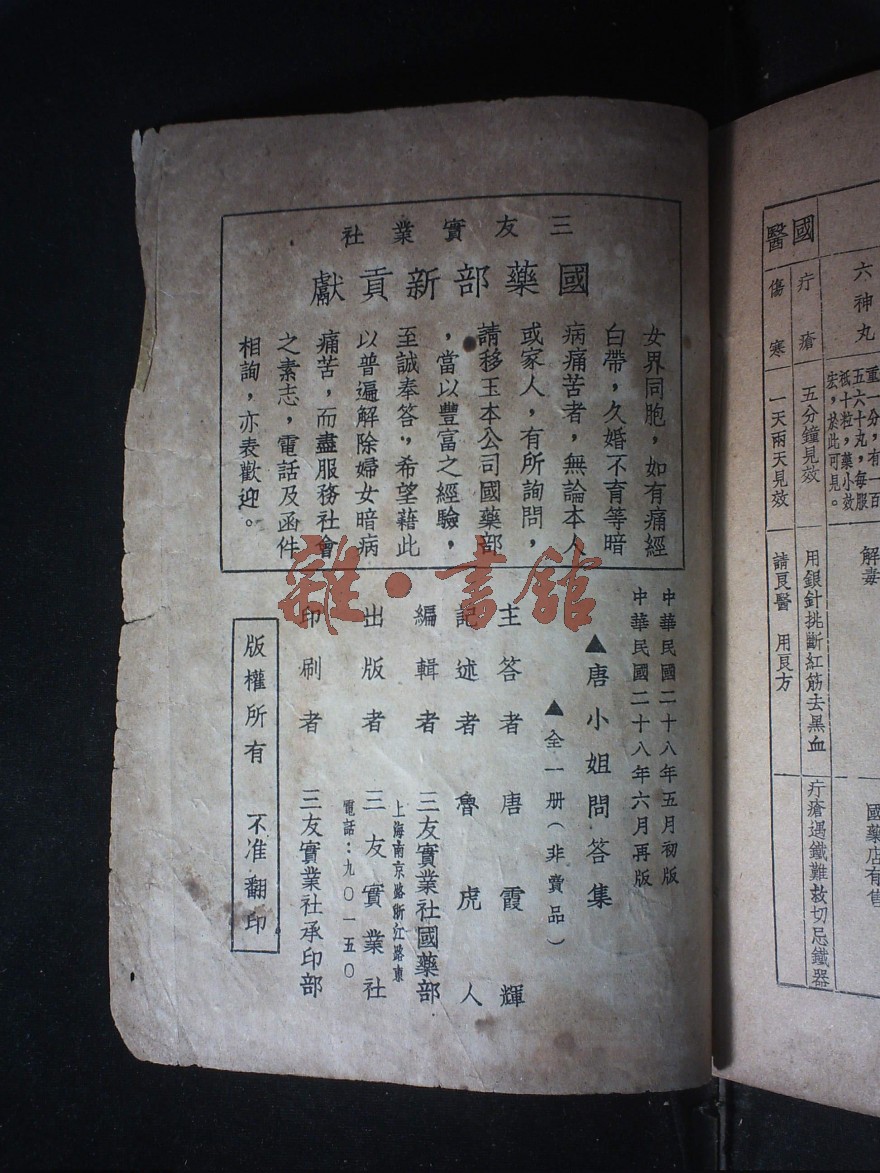 三友實業社
國藥部新貢獻
女界同胞，如有痛經
白帶，久婚不育等暗
病痛苦者，無論本人
或家人，有所詢問，
請移玉本公司國藥部
，當以豐富之經驗，
至誠奉答，希望藉此
以普遍解除婦女暗病
痛苦，而盡服務社會
之素志，電話及函件
相詢，亦表歡迎。
中華民國二十八年五月初版
中華民國二十八年六月再版
▲唐小姐問答集
▲全一册（非賣品）
主答者 唐霞輝
記述者 魯虎人
編輯者 三友實業社國藥部
上海南京路浙江路東
出版者 三友實業社
電話：九〇一五〇
印刷者 三友實業社承印部
版權所有 不准翻印
雜·書館
六神丸
重一分，有一百
五六十丸，每服
祇十粒，藥小效
宏，於此可見。
解毒
國藥店有售
國醫
疔瘡 五分鐘見效 用銀針挑斷紅筋去黑血 疔瘡遇鐵難救切忌鐵器
傷寒 一天兩天見效 請良醫 用良方